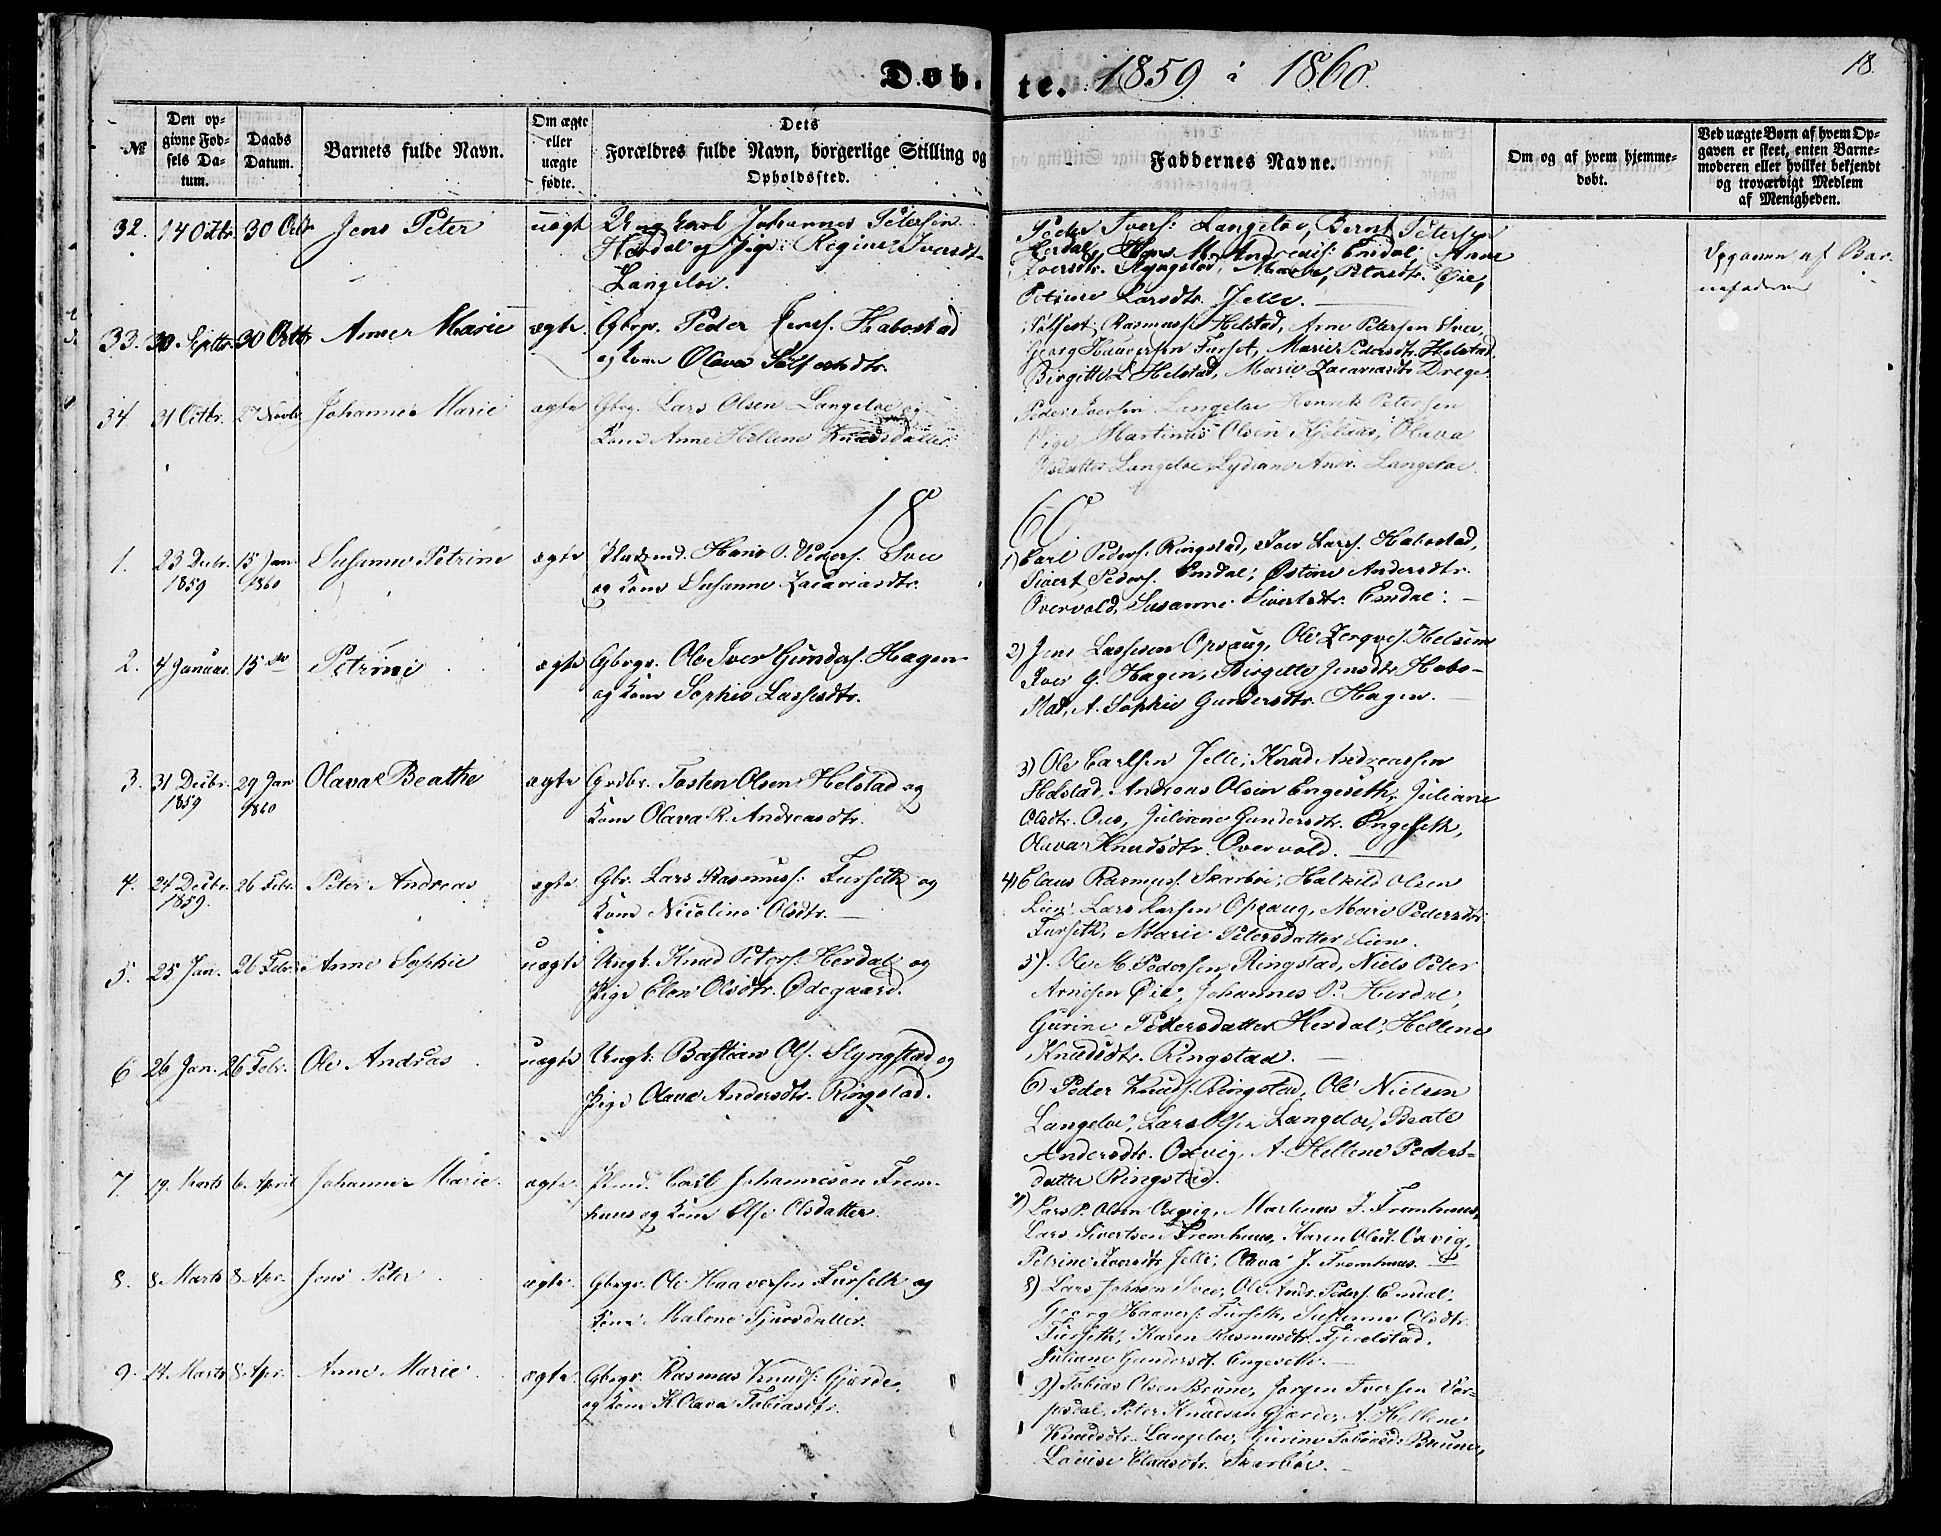 Døb- te. 1859 à 1860. 18.
№
Den opgivne Fødsels Datum.
Daabs Datum.
Barnets fulde Navn.
Om ægte eller uægte fødte.
Dets Forældres fulde Navn, borgerlige Stilling og Opholdssted.
Faddernes Navne.
Om og af hvem hjemmedøbt.
Ved uægte Børn af hvem Opgaven er skeet, enten Barnemoderen eller hvilket bekjendt og troværdigt Medlem af Menigheden.
32. 14 Octbr. 30 Octr. Jens Peter uægt Ung karl Johannes Petersen
Herdal og Pige: Regine Iversdt.
Langeloe.
Peder Ivers: Langeloe, Bernt Petersen
Herdal, Hans M. Andreas: Emdal, Anne
Iversdtr. Slyngstad, Marte Berntsdtr. Øie,
Petrine Larsdtr. Jelle.
Opgaven af Barnefaderen
33. 30 Septbr. 30 Octbr Anne Marie ægte Gbrgr. Peder Jens. Habostad
og Kone Olava Solfestdtr.
Solfest Rasmuss. Helstad, Arne Petersen Svee,
Georg Haaversen Furset, Marie Pedersdtr. Helstad,
Birgitte L Helstad, Marie Zacariasdtr Drege
34. 31 Octbr. 27 Novbr Johanne Marie ægte Gbrgr. Lars Olsen Langeloe og
Kone Anne Hellene Knudsdatter.
Peder Iversen Langeloe Henrik Petersen
Martinus Olsen Kjølaas, Olava
Olsdatter Langeloe, Lydiane Andr. Langeloe.
18 60
1. 23 Decbr. 1859 15 Jan. 1860 Susanne Petrine ægte Huusmd. Hans P. Peders. Svee
og Kone Susanne Zacariasdtr.
1) Carl Peders. Ringstad, Iver Larss. Habostad,
Sivert Peders. Emdal; Østine Andersdtr.
Overvold, Susanne Sivertsdtr. Emdal.
2. 4 Januar. 15 do Petrine ægte Gbrgr. Ole Iver Gunders. Hagen
og Kone Sophie Lassesdtr.
2) Jens Lassesen Opsaug, Ole Zergves. Helsem
Iver G. Hagen, Birgitte Jensdtr. Habostad, A. Sophie Gundersdtr. Hagen.
3. 31 Decbr. 1859 29 Jan 1860 Olava Beathe ægte Grdbr. Tosten Olsen Helstad og
Kone Olava R. Andreasdtr.
3) Ole Carlsen Jelle, Knud Andreassen
Helstad, Andreas Olsen Engeseth, Juliane
Olsdtr. Aus, Julienne Gundersdtr. Engeseth,
Olava Knudsdtr. Overvold.
4. 24 Decbr. 1859. 26 Febr. Peter Andreas ægte Gbr. Lars Rasmuss. Furseth og
Kone Nicoline Olsdtr.
4) Claus Rasmuss. Skarbøe, Halkild Olsen
Lien, Lars Larsen Opsaug, Marie Pedersdtr.
Furseth, Marie Petersdatter Lien.
5. 25 Jan. 26 Febr. Anne Sophie uægte Ungk. Knud Peters. Herdal og
Pige Elen Olsdtr. Ødegaard.
5) Ole M. Pedersen Ringstad, Niels Peter
Arnesen Øie, Johannes P. Herdal,
Gurine Pedersdatter Herdal, Hellene
Knudsdtr. Ringstad.
6 26 Jan. 26 Febr. Ole Andreas uægte Ungk. Bastian Ols. Slyngstad og
Pige Olava Andersdtr. Ringstad.
6) Peder Knuds. Ringstad, Ole Nielsen
Langeloe, Lars Olsen Langeloe, Beate
Andersdtr. Oxvig, A. Hellene Pedersdatter Ringstad.
7. 19. Marts 6. April Johanne Marie. ægte Plmd. Carl Johannesen Fremhuus og Kone Else Olsdatter.
7) Lars P. Olsen Oxvig, Martinus J. Fremhuus,
Lars Sivertsen Fremhuus, Karen Olsd. Oxvig,
Petrine Iversdtr Jelle, Olava J. Fremhuus.
8. 8 Marts 8 Apr. Jens Peter ægte. Gbrgr. Ole Haaversen Furseth og
Kone Malene Sjursdatter.
8) Lars Johnsen Svee, Ole Andr. Peders. Emdal,
Georg Haavers. Furseth, Susanne Olsdtr.
Furseth, Karen Rasmusdtr. Fjeldstad,
Juliane Gundersdt. Engeseth.
9. 14. Marts 8. Apr. Anne Marie ægte. Gbrgr. Rasmus Knuds. Gjærde,
og Kone K. Olava Tobiasdtr.
9) Tobias Olsen Brune, Jørgen Iversen Vorpedal, Peter Knudsen Gjærde, A. Hellene
Knudsdtr. Langeloe, Gurine Tobiasd. Brune,
Lovise Clausdtr. Skarbøe.